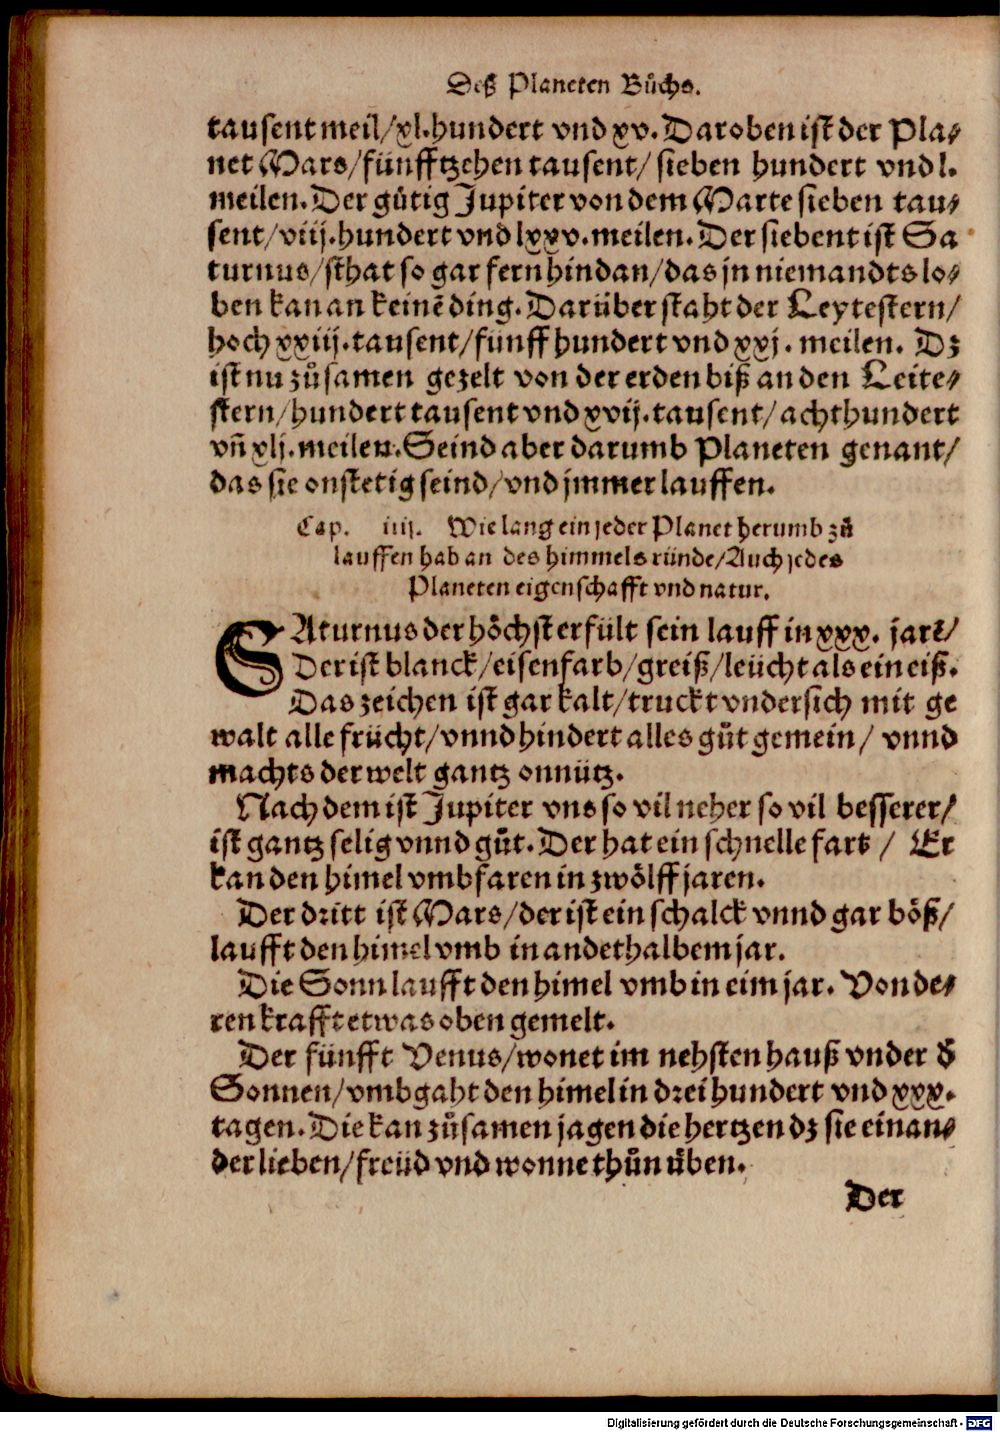 Deß Planeten Bůchs.
tausent meil/xl.hundert vnd xv. Daroben ist der Pla⸗
net Mars/fünfftzehen tausent/ sieben hundert vnd l.
meilen. Der gůtig Jupiter von dem Marte sieben tau⸗
sent/viij.hundert vnd lxxv.meilen. Der siebent ist Sa
turnus/sthat so gar fern hindan/das jn niemandts lo⸗
ben kan an keinē ding. Darüber staht der Leytestern/
hoch xxiij.tausent/fünff hundert vnd xxj. meilen. Dz
ist nu zůsamen gezelt von der erden biß an den Leite⸗
stern/hundert tausent vnd xvij. tausent/achthundert
vñ xlj. meilen. Seind aber darumb Planeten genant/
das sie onstetig seind/vnd jmmer lauffen.
Cap. iiij. Wie lang ein jeder Planet herumb zů
lauffen hab an des himmels ründe/Auch jedes
Planeten eigenschafft vnd natur.
SAturnus der höchst erfült sein lauff in xxx. jarē/
Der ist blanck/eisenfarb/greiß/leücht als ein eiß.
Das zeichen ist gar kalt/truckt vndersich mit ge
walt alle frücht/vnnd hindert alles gůt gemein/ vnnd
machts der welt gantz onnütz.
Nach dem ist Jupiter vns so vil neher so vil besserer/
ist gantz selig vnnd gůt. Der hat ein schnelle fart / Er
kan den himel vmbfaren in zwölff jaren.
Der dritt ist Mars/der ist ein schalck vnnd gar böß/
laufft den himel vmb in andethalbem jar.
Die Sonn laufft den himel vmb in eim jar. Von de⸗
ren krafft etwas oben gemelt.
Der fünfft Venus/wonet im nehsten hauß vnder d̄
Sonnen/vmbgaht den himel in drei hundert vnd xxx.
tagen. Die kan zůsamen jagen die hertzen dz sie einan⸗
der lieben/freüd vnd wonne thůn üben.
Der
Digitalisierung gefördert durch die Deutsche Forschungsgemeinschaft - DFG